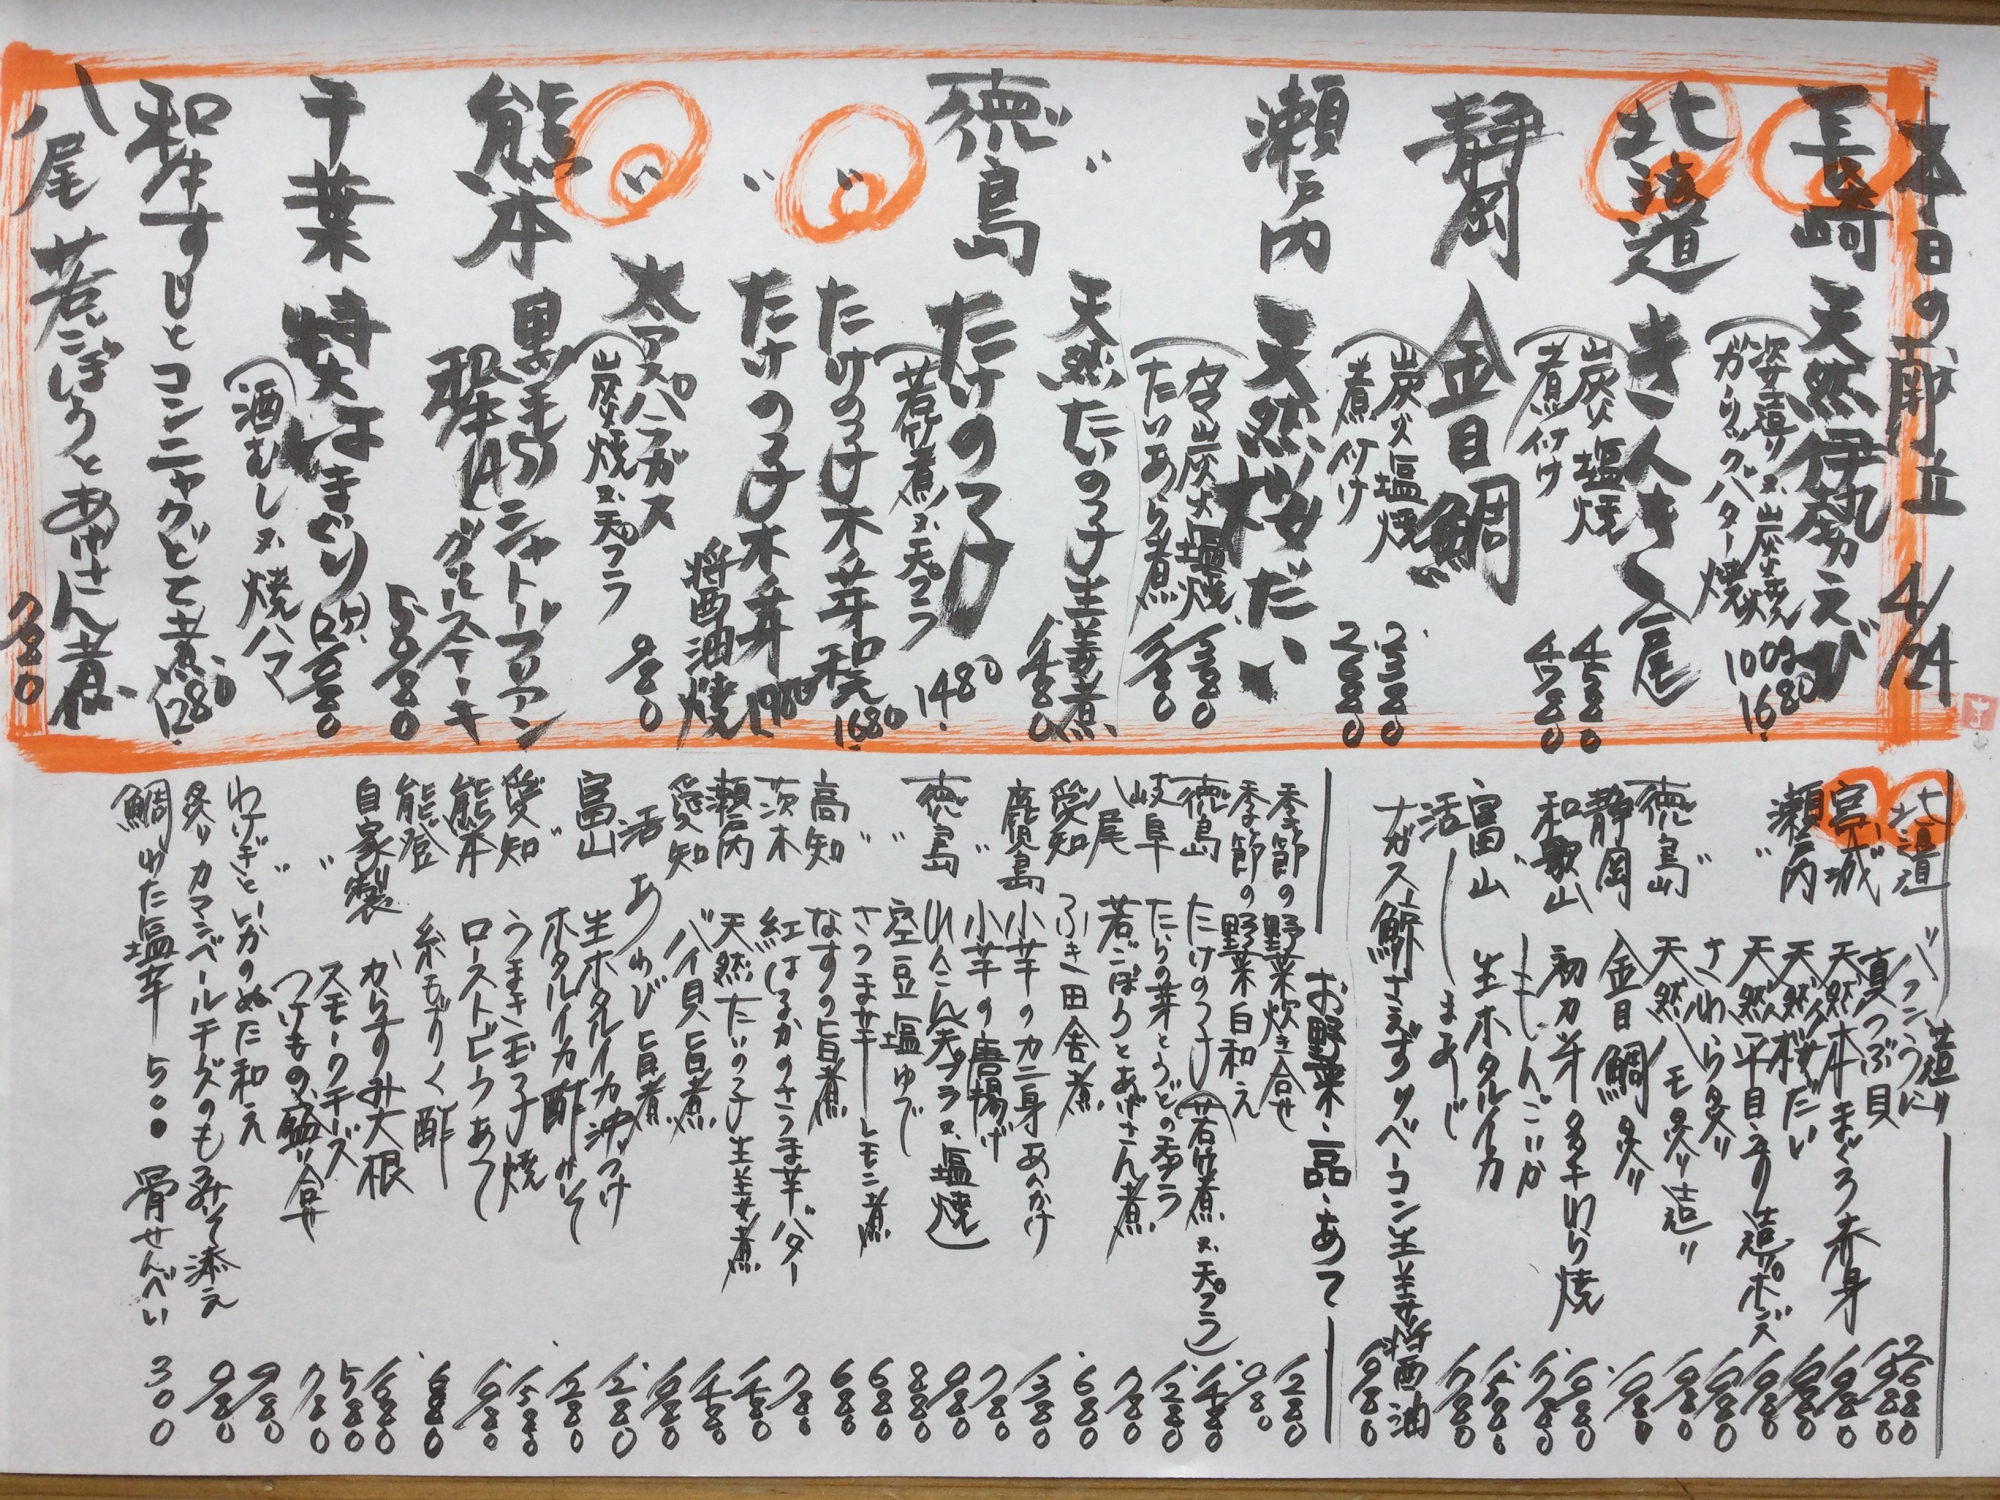 本日の献立 4/24
長崎 天然伊勢えび
姿造り又ハ炭火焼
がーりっくバター焼
100g 1680
北海道 きんき 一尾
炭火塩焼 4580
煮付け 4780
静岡 金目鯛
炭火塩焼 2380
煮付け 2680
瀬戸内 天然桜だい
カマ炭火塩焼 1380
たいあら煮 1280
〃 天然たいの子生姜煮 1480
徳島 たけのこ
若竹煮又ハ天プラ 1480
〃 たけのこ木ノ芽和え 1680
〃 たけのこ木ノ芽醤油焼 1980
〃 太アスパラガス
炭火焼又ハ天プラ 980
熊本 黒毛和牛(A5)シャトーブリアン
グリルステーキ 5080
千葉 特大はまぐり
酒むし又ハ焼ハマ
和牛すじとコンニャクどて煮 1280
八尾 若ごぼうとあげさん煮 780
造り
北海道 バフンうに 2680
〃 真つぶ貝 1980
宮城 天然本まぐろ赤身 1980
瀬戸内 天然桜だい 1980
〃 天然平目、造り、ポンズ 1980
〃 さわら炙り 1980
徳島 天然ハモ炙り造り 1980
静岡 金目鯛炙り 1980
和歌山 初カツオタタキわら焼 1680
〃 もんごいか 1580
富山 生ホタルイカ 1280
活〆しまあじ 1780
ナガス鯨さえずりベーコン生姜醤油 1980
お野菜・一品・あて
季節の野菜炊き合せ 1280
季節の野菜白和え 980
徳島 たけのこ(若竹煮又ハ天プラ) 1480
岐阜 たらの芽とうどの天プラ 1280
八尾 若ごぼうとあげさん煮 780
愛知 ふき田舎煮 680
鹿児島 小芋のカニ身あんかけ 1380
〃 小芋の唐揚げ 780
徳島 れんこん天プラ又ハ塩焼 980
〃 空豆塩ゆで 880
〃 さつま芋レモン煮 680
高知 なすの旨煮 680
茨木 紅はるかのさつま芋バター 780
瀬戸内 天然たいの子生姜煮 1480
愛知 バイ貝旨煮 1480
活あわび旨煮 1980
富山 生ホタルイカ沖づけ 1280
〃 ホタルイカ酢みそ 1280
愛知 うまき玉子焼 1580
熊本 ローストビーフあて 1980
能登 糸もずく酢 680
自家製 からすみ大根 1680
〃 スモークチーズ 580
〃 つけもの盛り合せ 780
わけぎといかのぬた和え 980
炙りカマンベールチーズのもろみそ添え 980
鯛わた塩辛 500 骨せんべい 300